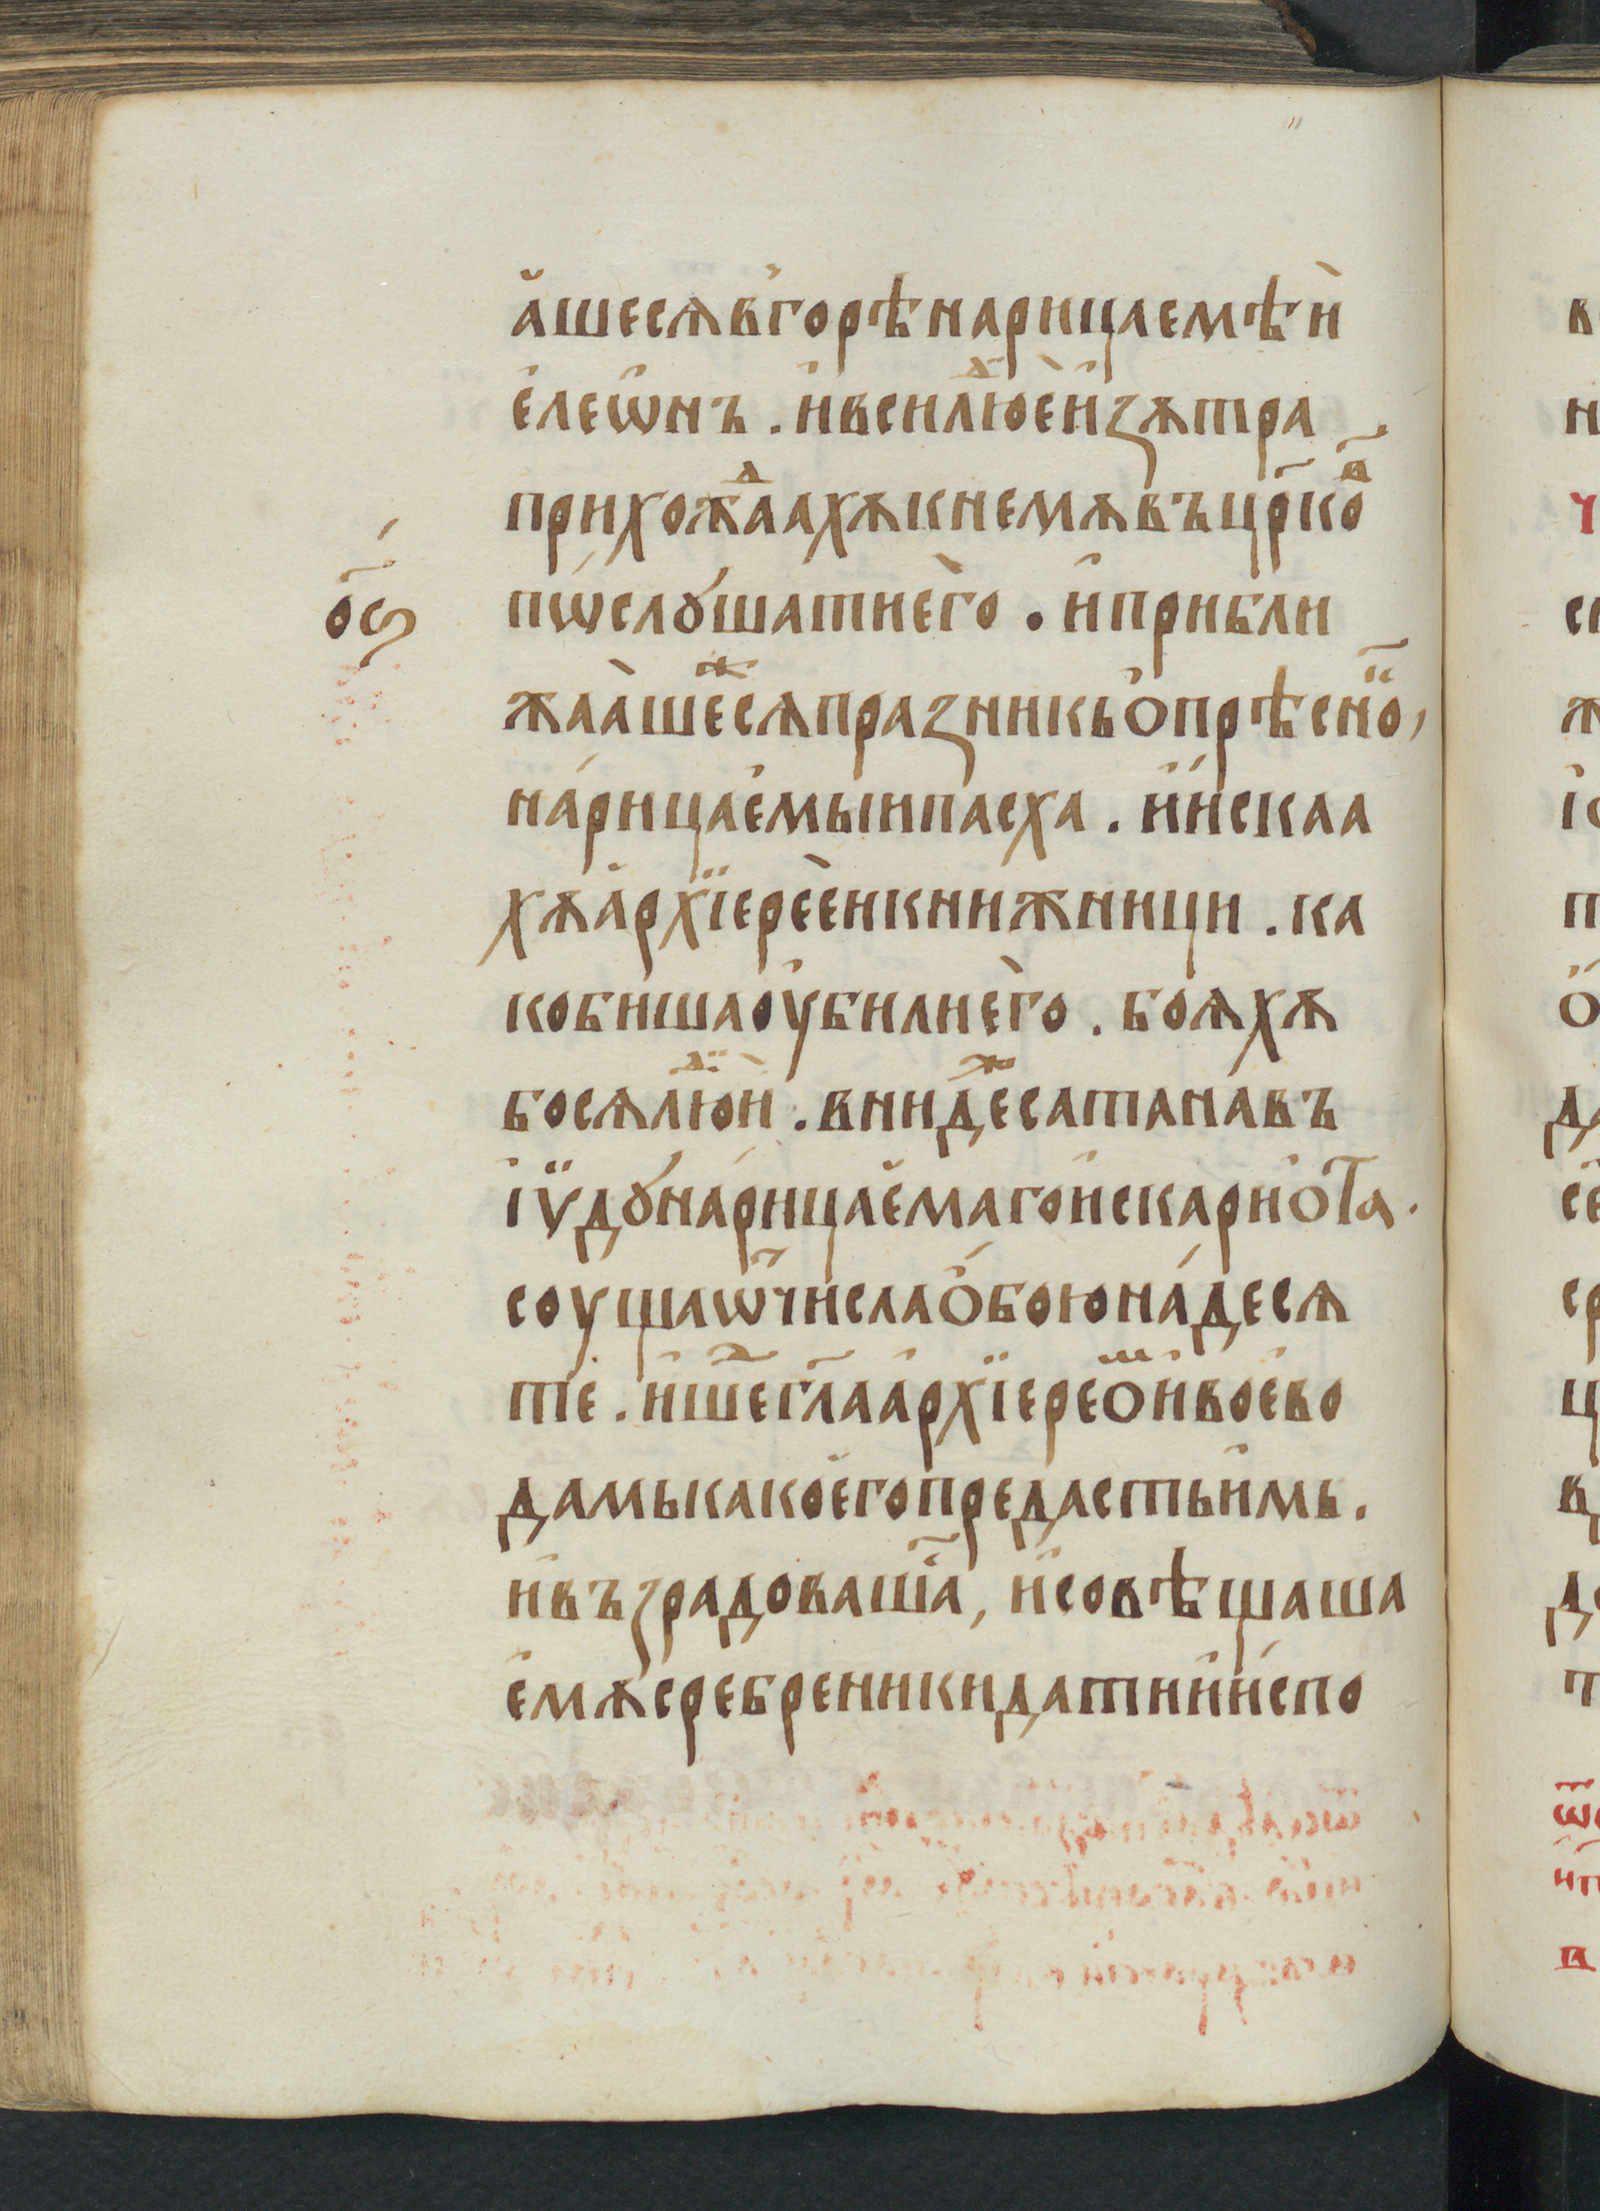 а҆шесѧв̾горѣнарицаемѣи
е҆леѡ҆нъ . и҆всилю́еи҆зѫтра
прихожⷣаахѫкнемѫвъцр҃ковⷡ
пѡслꙋшатиего . и҆прибли
о҃ѕ
жаашежⷤесѧпразникьо҆прѣснⷪ҇,
на́рицае҆мыипасха . и҆и҆скаа
хѫа҆рхїереѐикнижници . ка
кобишаоу҆билиего . боѧхѫ
босѧлюⷣи . вниⷤдесатанавъ
іѵ҆дꙋна́рицае҆магои҆скарио҆та .
соущаѿчислао҆боюна́десѧ
те . и҆шеⷣгл҃аархїереⷨои҆вое҆во
дамькакоегопредастьи҆мь .
и҆възрадоваша , и҆совѣщаша
е҆мѫсребреникидатии҆и҆спо